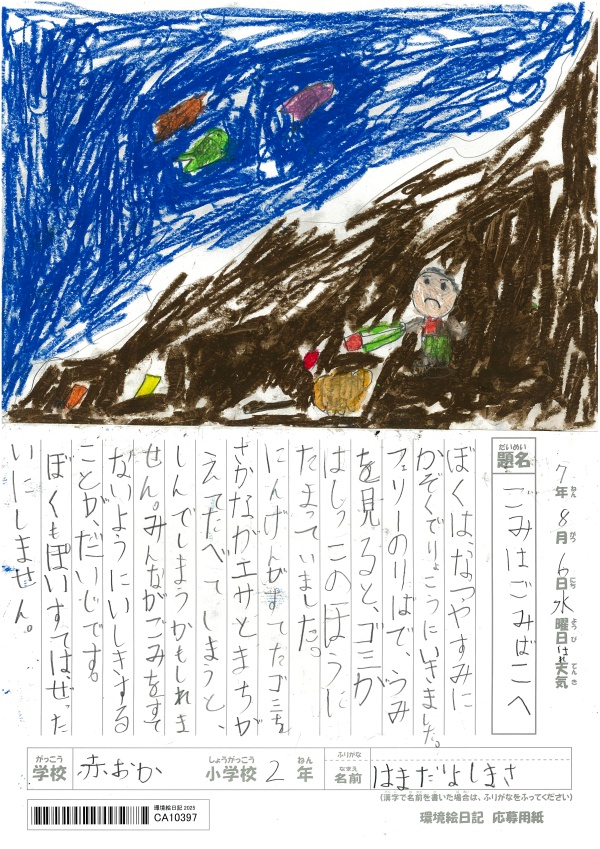 7年ねん8月がつ6日にち水曜日ようびはれ天気てんき
だいめい
題名
ごみはごみばこへ
ぼくは、なつやすみに
かぞくでりょこうにいきました。
フェリーのりばで、うみ
を見ると、ゴミが
はしっこのほうに
たまっていました。
にんげんがすてたゴミを
さかながエサとまちが
えてたべてしまうと、
しんでしまうかもしれま
せん。みんながごみをすて
ないようにいしきする
ことが、だいじです。
ぼくもぽいすては、ぜった
いにしません。
がっこう
学校
赤おか
しょうがっこう
小学校
2
ねん
年
ふりがな
なまえ
名前
はまだよしまさ
(漢字で名前を書いた場合は、ふりがなをふってください)
環境絵日記 2025
CA10397
環境絵日記 応募用紙